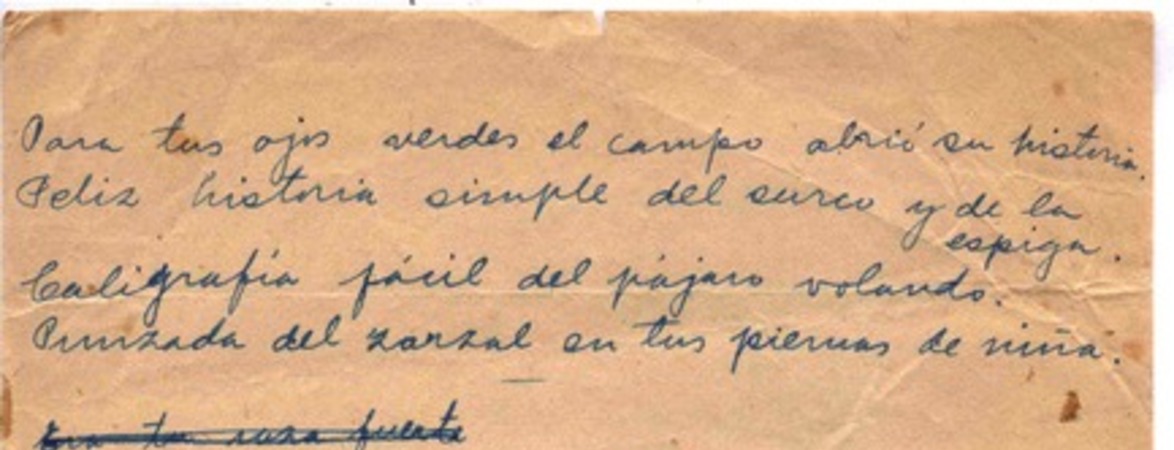 Para tus ojos verdes el campo abrió su historia.
Feliz historia simple del surco y de la
espiga.
Caligrafía fácil del pájaro volando.
Punzada del zarzal en tus piernas de niña.